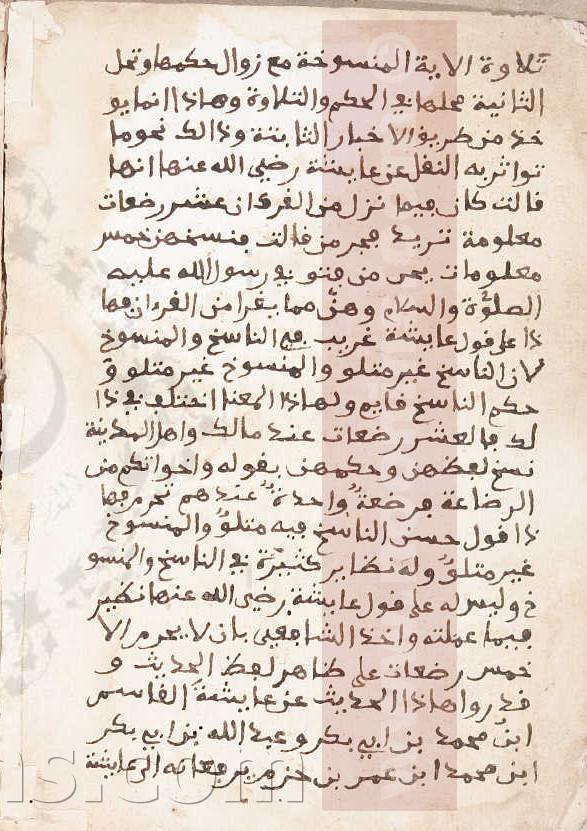 تلاوة الاية المنسوخة مع زوال حكمها وتحل
الثانية محلها في الحكم والتلاوة وهاذا انما يو
خذ من طريق الاخبار الثابتة وذالك نحو ما
تواتر به النقل عن عايشة رضي الله عنها انها
قالت كان فيما نزل من القرءان عشر رضعات
معلومة تريد يحرمن قالت فنسخهن خمس
معلومات يحرمن فتوفي رسول الله عليه
الصلوة والسلام وهن مما يقرا من القرءان فها
ذا على قول عايشة غريب في الناسخ والمنسوخ
لان الناسخ غير متلو والمنسوخ غير متلو و
حكم الناسخ قايم ولهاذا المعنا اختلف في ذا
لك فالعشر رضعات عند مالك واهل المدينة
نسخ لفظهن وحكمهن بقوله واخواتكم من
الرضاعة فرضعة واحدة عندهم تحرم فها
ذا قول حسن الناسخ فيه متلو والمنسوخ
غير متلو وله نظاير كثيرة في الناسخ والمنسو
خ وليس له على قول عايشة رضي الله عنها نظير
فيما عملته واخذ الشافعي بان لا يحرم الا
خمس رضعات على ظاهر لفظ الحديث و
قد روا هاذا الحديث عن عايشة القاسم
ابن محمد بن ابي بكر وعبد الله بن ابي بكر
ابن محمد ابن عمر بن حزم يرفعانه الى عايشة
is.com